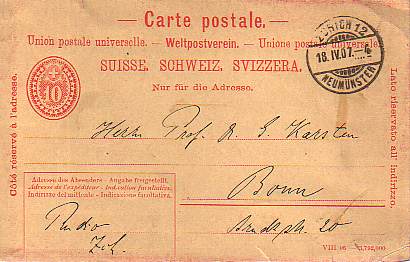 Carte postale.
Union postale universelle. — Weltpostverein. — Unione postale universale.
SUISSE. SCHWEIZ. SVIZZERA.
Nur für die Adresse.
Côté réservé à l'adresse.
Lato riservato all' indirizzo.
10
ZÜRICH 12
18. IV. 07.
NEUMÜNSTER
Herrn Prof. Dr. G. Karsten
Bonn
20
Adresse des Absenders - Angabe freigestellt.
Adresse de l'expéditeur - Indication facultative.
Indirizzo del mittente - Indicazione facultativa.
Rudio
Zch.
VIII 06